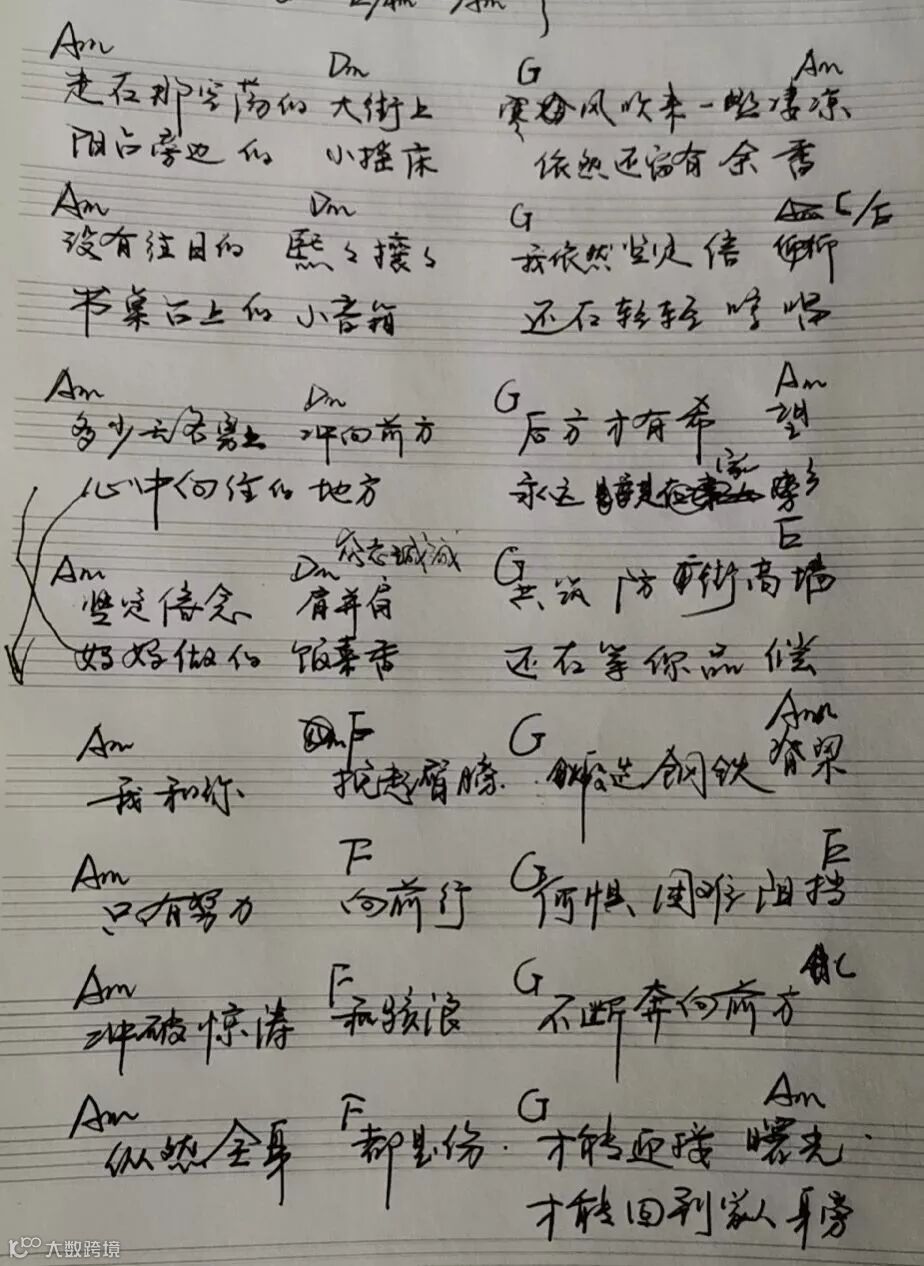 Am Dm G Am
走在那空荡的 大街上 寒风吹来一些凄凉
阳台旁边的 小摇床 依然还留有余香
Am Dm G E/E
没有往日的 熙々攘々 我依然坚定信仰
书桌台上的 小音箱 还在轻轻哼唱
Am Dm G Am
多少 冲向前方 后方才有希望
心中向往的 地方 永远 家
众志城诚
Am Dm G E
坚定信念 肩并肩 共筑 防 高墙
妈妈做的 饭菜香 还在等你品偿
Am F G Am
我和你 挽起臂膀 锻造钢铁脊梁
Am F G E
只有努力 向前行 何惧困难阻挡
Am F G C
冲破惊涛 和骇浪 不断奔向前方
Am F G Am
纵然全身 都是伤 才能迎接 曙光
才能回到家人身旁
大数跨境